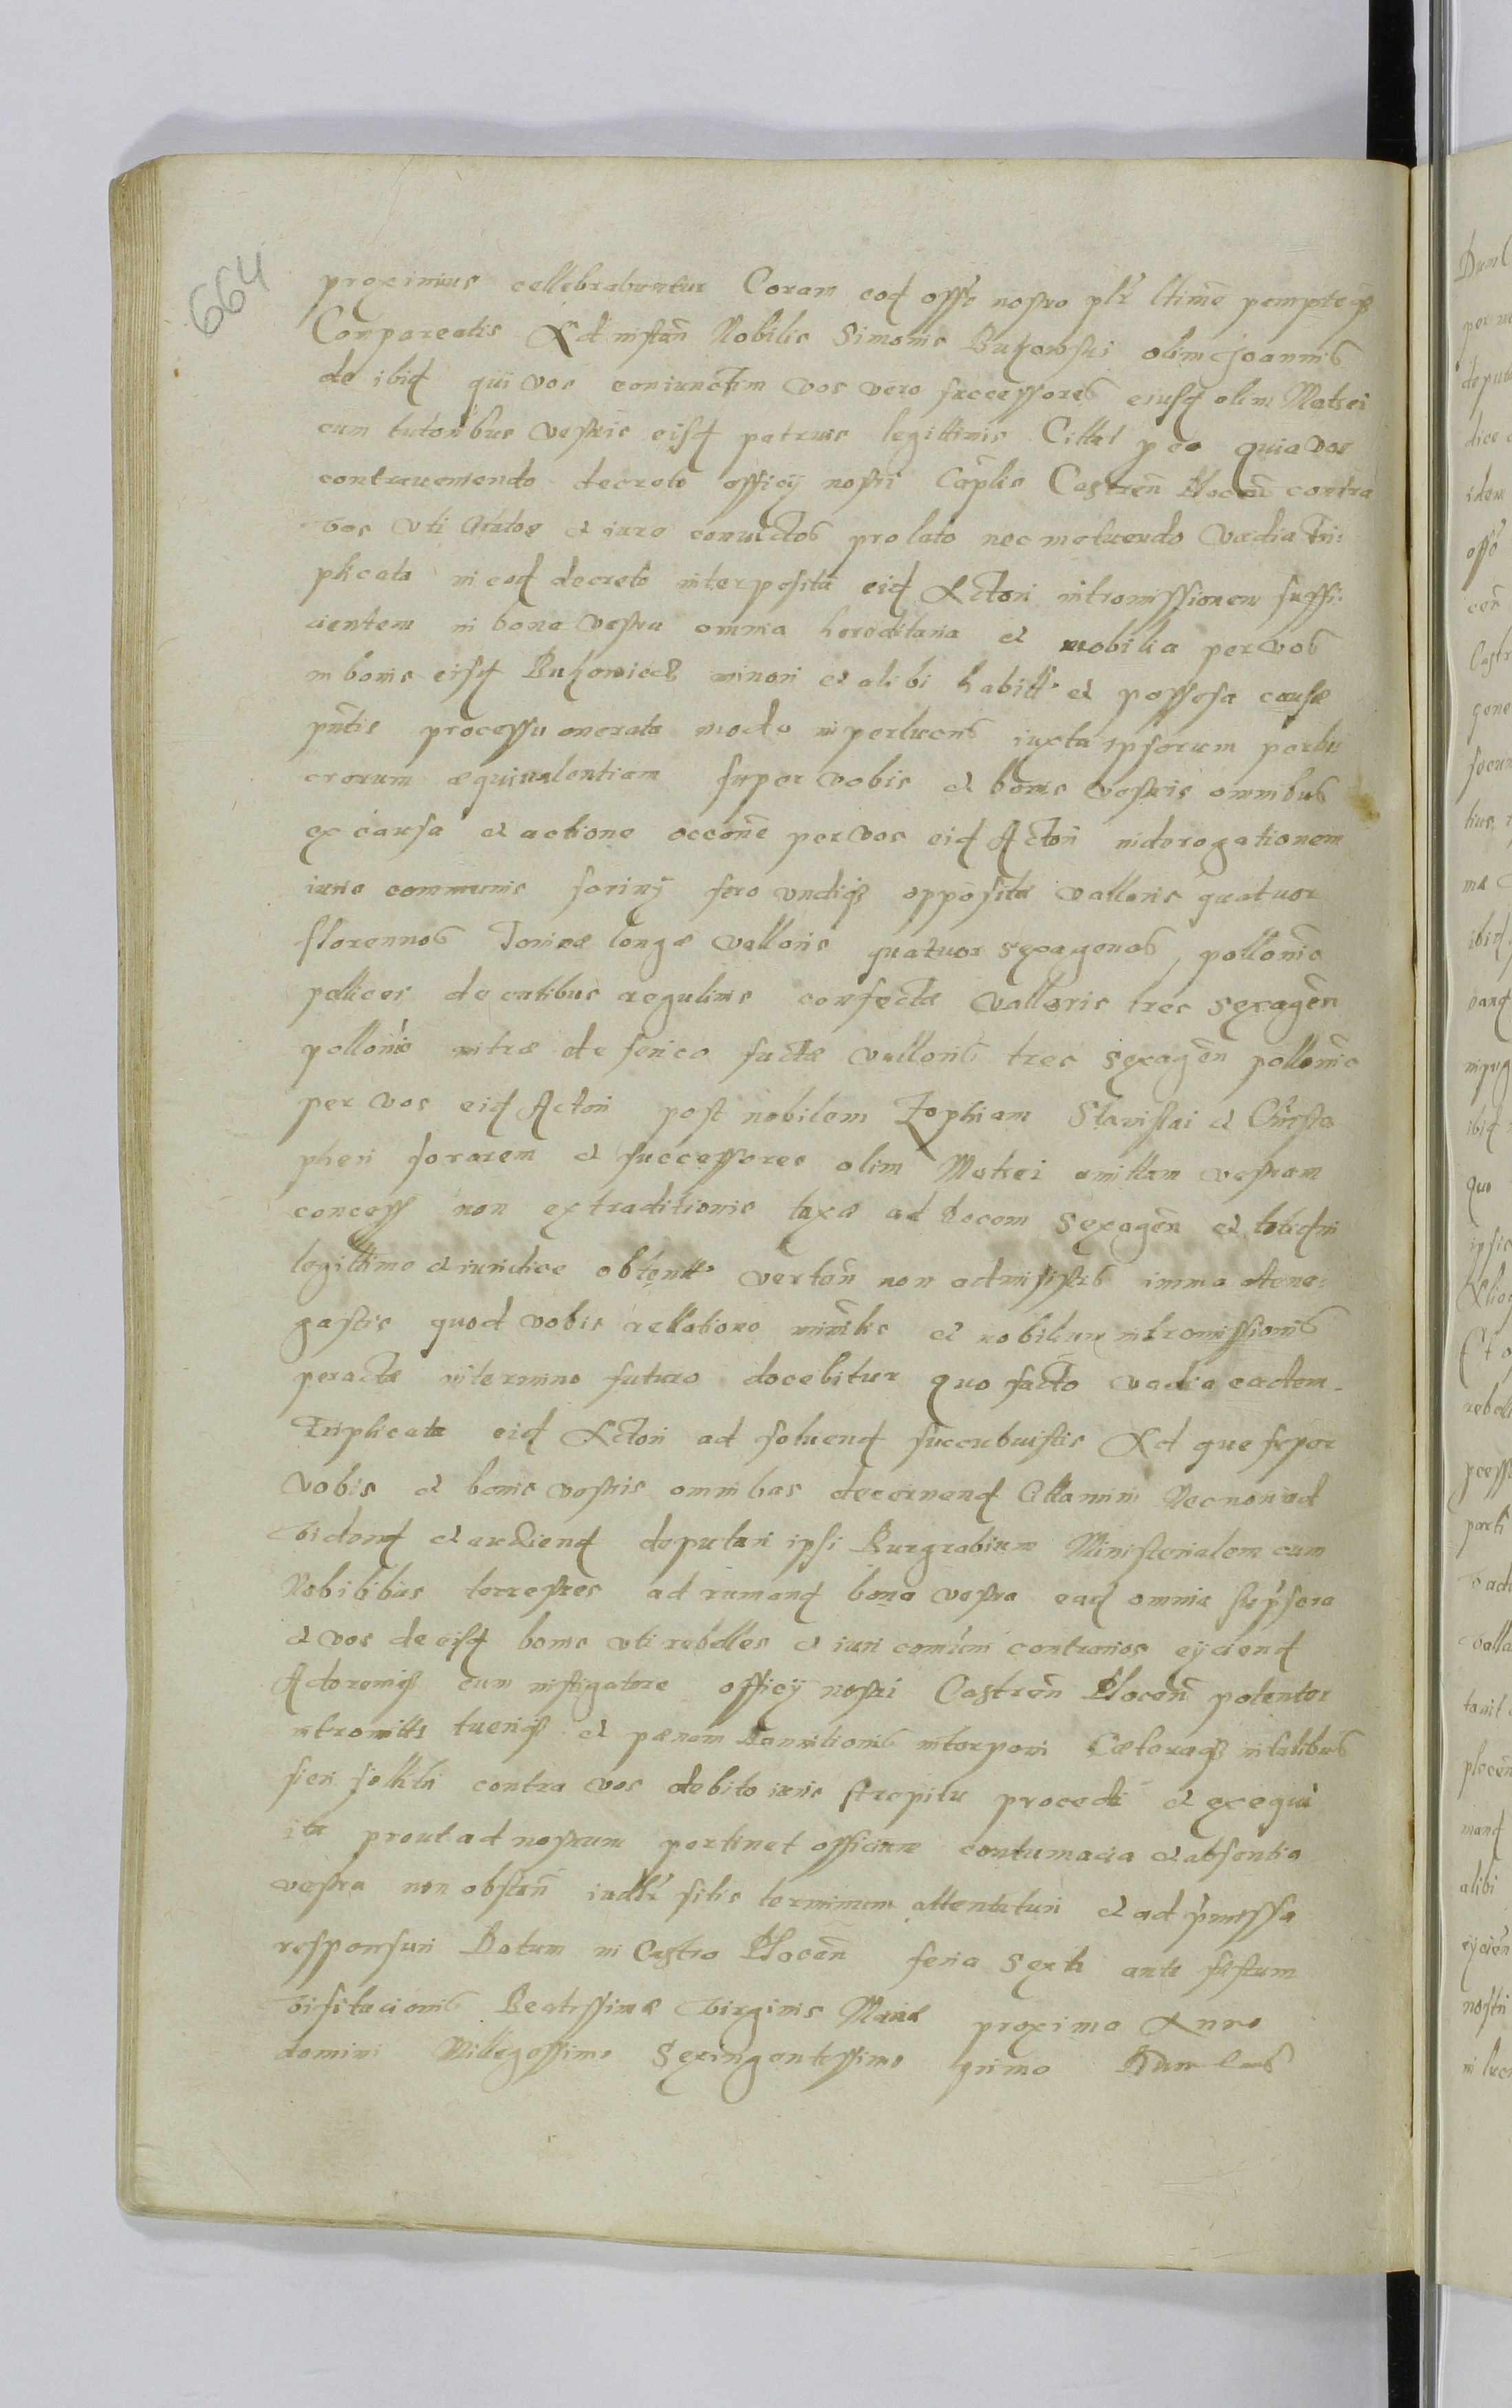 664
proximius cellebrabuntur Coram eod offo nostro plr ltime pempteqз
Compareatis Ad instan Nobilis Simonis Bukowski olim Joannis
de ibid qui vos coniunctim vos vero successores eiusd olim Matsei
cum tutoribus vestris eisd patruis legittimis Cittat peo quia vos
contraueniendo decreto officij nostri Caplis Castren Plocen contra
vos vti Citatos et iure conuictos prolato nec metuendo vadia tri:
plicata in eod decreto interposita eid Actori intromissionem suffi:
cientem in bona vestra omnia hereditaria et mobilia per vos
in bonis eisd Bukowiecz minori et alibi habitt et possesa causæ
pntis processu onerata modo in perlucris iuxta ipsorum perlu
crorum æquiualentiam super vobis et bonis vestris omnibus
ex causa et actione occone per vos eid Actori in derogationem
iuris communis
florennos Tonicæ longæ valloris quatuor sexagenas pollonic
pellicei de cutibus agulinis confectæ valloris tres sexagen
pollonic mitræ de serico factæ valloris tres sexagen pollonic
per vos eid Actori post nobilem Zophiam Stanislai et Christo
pheri sororem et successores olim Matsei amittam vestram
concess non extraditionis taxæ ad decem sexagen et totidm
legittime et iuridice obtentt verten non admisistis immo abne:
gastis quod vobis rellatione minrlis et nobilium intromissionis
peractæ in termino futuro docebitur quo facto vadia eadem
Triplicata eid Actori ad soluend succubuistis Ad que super
vobis et bonis vestris omnibus decernend Necnon ad
vidend et audiend deputari ipsi Burgrabium Ministerialem cum
Nobilibus terrestres ad rumand bona vestra ead omnia supsera
et vos de eisd bonis vti rebelles et iuri comuni contrarios eyciend
Actoremqз cum instigatore officij nostri Castren Plocen potenter
intromitti tueriqз et pænam bannitionis interponi Cæteraqз in talibus
fieri sollita contra vos debito iuris strepitu procedi et exequi
ita prout ad nostrum pertinet officium contumacia et absentia
vestra non obstan iudlr sitis terminum attentaturi et ad pmissa
responsuri Datum in Castro Plocen feria sexta ante festum
visitacionis Beatissimæ Virginis Mariæ proximo Anno
domini Millegessimo Sexingentessimo primo